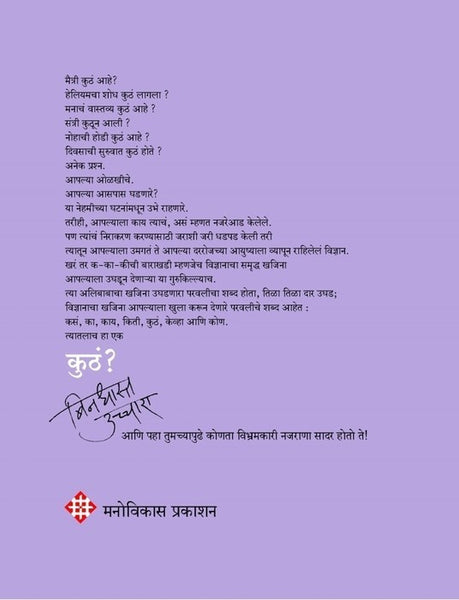 मैत्री कुठं आहे?
हेलियमचा शोध कुठं लागला ?
मनाचं वास्तव्य कुठं आहे ?
संत्री कुठून आली ?
नोहाची होडी कुठं आहे ?
दिवसाची सुरुवात कुठं होते ?
अनेक प्रश्न.
आपल्या ओळखीचे.
आपल्या आसपास घडणारे?
या नेहमीच्या घटनांमधून उभे राहणारे.
तरीही, आपल्याला काय त्याचं, असं म्हणत नजरेआड केलेले.
पण त्यांचं निराकरण करण्यासाठी जराशी जरी धडपड केली तरी
त्यातून आपल्याला उमगतं ते आपल्या दररोजच्या आयुष्याला व्यापून राहिलेलं विज्ञान.
खरं तर क-का-कीची बाराखडी म्हणजेच विज्ञानाचा समृद्ध खजिना
आपल्याला उघडून देणाऱ्या या गुरुकिल्ल्याच.
त्या अलिबाबाचा खजिना उघडणारा परवलीचा शब्द होता, तिळा तिळा दार उघड;
विज्ञानाचा खजिना आपल्याला खुला करून देणारे परवलीचे शब्द आहेत :
कसं, का, काय, किती, कुठं, केव्हा आणि कोण.
त्यातलाच हा एक
कुठं?
बिनधास्त
उच्चारा
आणि पहा तुमच्यापुढे कोणता विभ्रमकारी नजराणा सादर होतो ते!
मनोविकास प्रकाशन